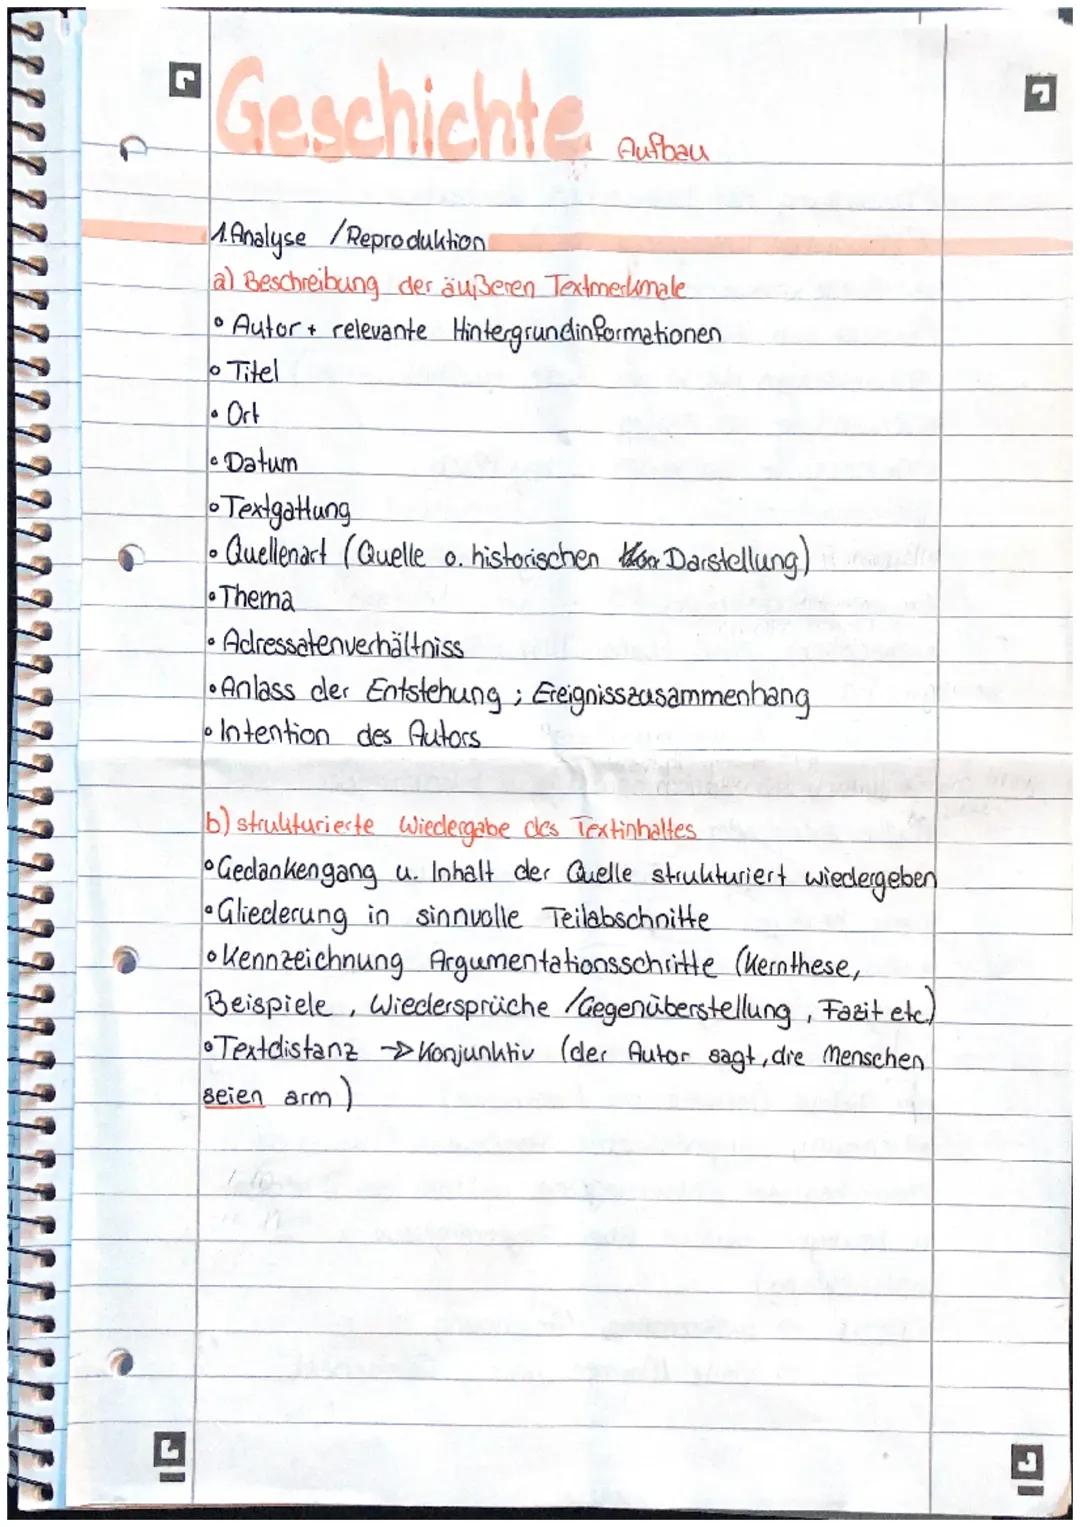 Geschichte Aufbau
1. Analyse / Reproduktion
a) Beschreibung der äußeren Textmerkmale
• Autor + relevante Hintergrundinformationen
• Titel
• Ort
• Datum
• Textgattung
• Quellenart (Quelle o. historischen Darstellung)
• Thema
• Adressatenverhältniss
• Anlass der Entstehung ; Ereigniszusammenhang
• Intention des Autors
b) strukturierte Wiedergabe des Textinhaltes
• Gedankengang u. Inhalt der Quelle strukturiert wiedergeben
• Gliederung in sinnvolle Teilabschnitte
• Kennzeichnung Argumentationsschritte (Kernthese,
Beispiele, Wiedersprüche / Gegenüberstellung, Fazit etc.)
• Textdistanz -> Konjunktiv (der Autor sagt, die Menschen
seien arm)